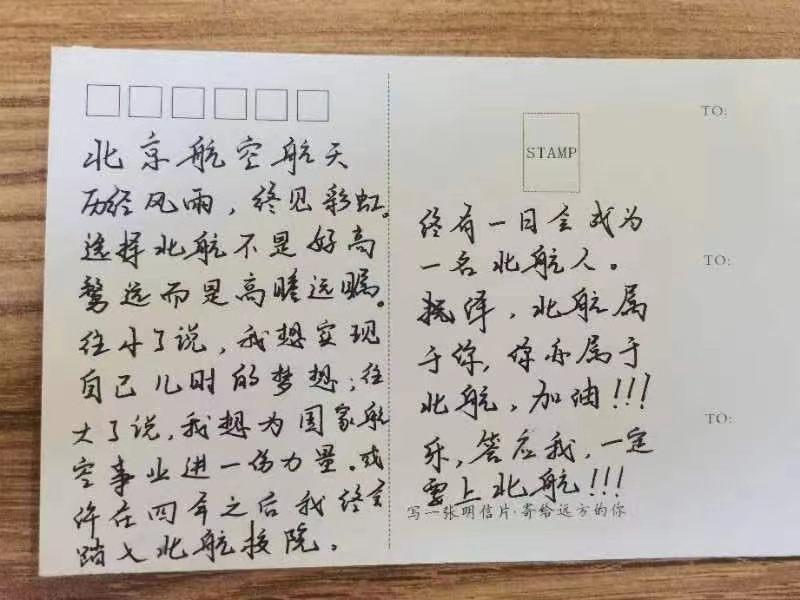 北京航空航天
历经风雨，终见彩虹。
选择北航不是好高
骛远而是高瞻远瞩。
往小了说，我想实现
自己儿时的梦想；往
大了说，我想为国家航
空事业进一份力量。或
许在四年之后我终究
踏入北航校院。
STAMP
终有一日会成为
一名北航人。
北航属
于你，你亦属于
北航，加油!!!
乐，答应我，一定
要上北航!!!
写一张明信片·寄给远方的你
TO:
TO:
TO: